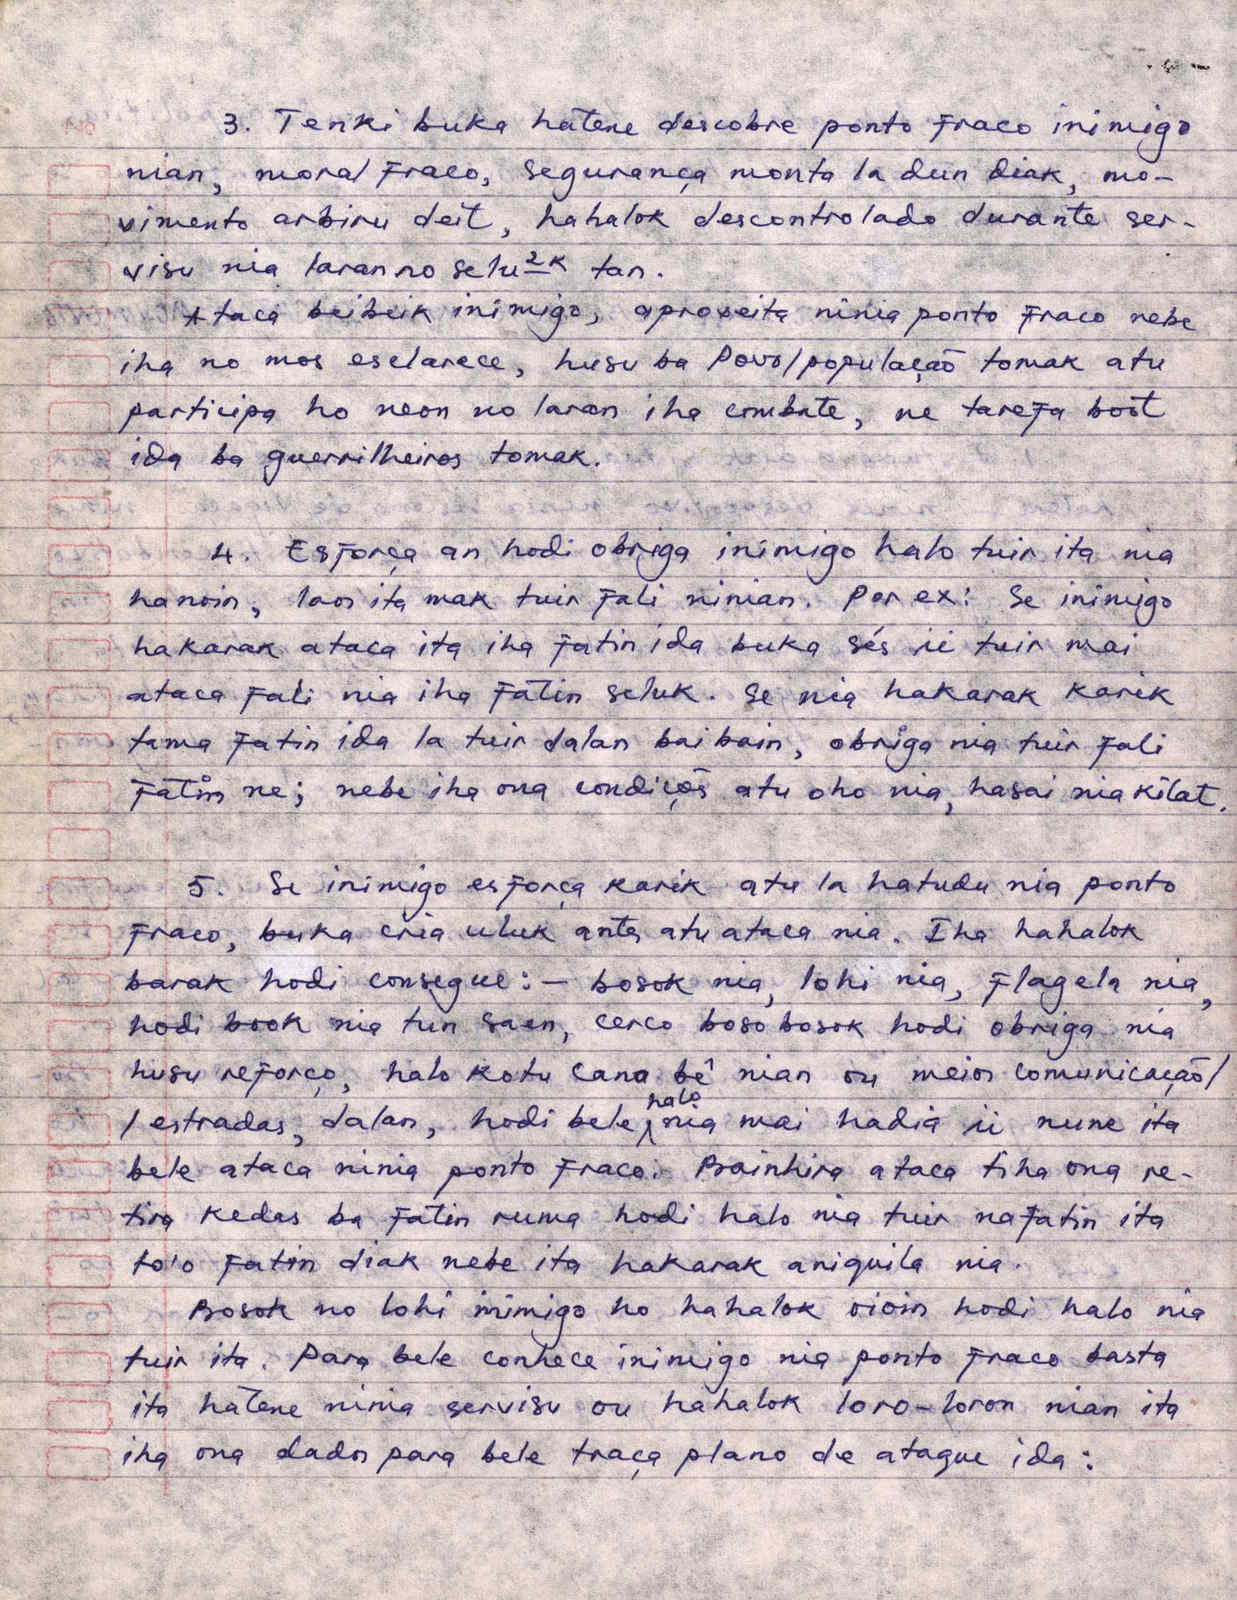 3. Tenki buka hatene descobre ponto fraco inimigo
nian, moral fraco, segurança monta la dun diak, mo-
vimento arbiru deit, hahalok descontrolado durante ser-
visu nia laran no selu2k tan.
Ataca beibeik inimigo, aproveita ninia ponto fraco nebe
iha no mos esclarece, husu ba Povo/população tomak atu
participa ho neon no laran iha combate, ne tarefa boot
ida ba guerrilheiros tomak.
4. Esforça an hodi obriga inimigo halo tuir ita nia
hanoin, laos ita mak tuir fali ninian. Por ex: Se inimigo
hakarak ataca ita iha fatin ida buka sés ii tuir mai
ataca fali nia iha fatin seluk. Se nia hakarak karik
tama fatin ida la tuir dalan baibain, obriga nia tuir fali
fatin ne; nebe iha ona condições atu oho nia, hasai nia kilat.
5. Se inimigo esforça karik atu la hatudu nia ponto
fraco, buka cria uluk antes atu ataca nia. Iha hahalok
barak hodi consegue: - bosok nia, lohi nia, flagela nia,
hodi book nia tun saen, cerco boso bosok hodi obriga nia
husu reforço, halo kotu cano bê nian ou meios comunicação/
/estradas, dalan, hodi bele halo nia mai hadia ii nune ita
bele ataca ninia ponto fraco. Bainhira ataca tiha ona re-
tira kedas ba fatin ruma hodi halo nia tuir nafatin ita
to'o fatin diak nebe ita hakarak aniquila nia.
Bosok no lohi inimigo ho hahalok oioin hodi halo nia
tuir ita. Para bele conhece inimigo nia ponto fraco basta
ita hatene ninia servisu ou hahalok loro-loron nian ita
iha ona dados para bele traça plano de ataque ida: